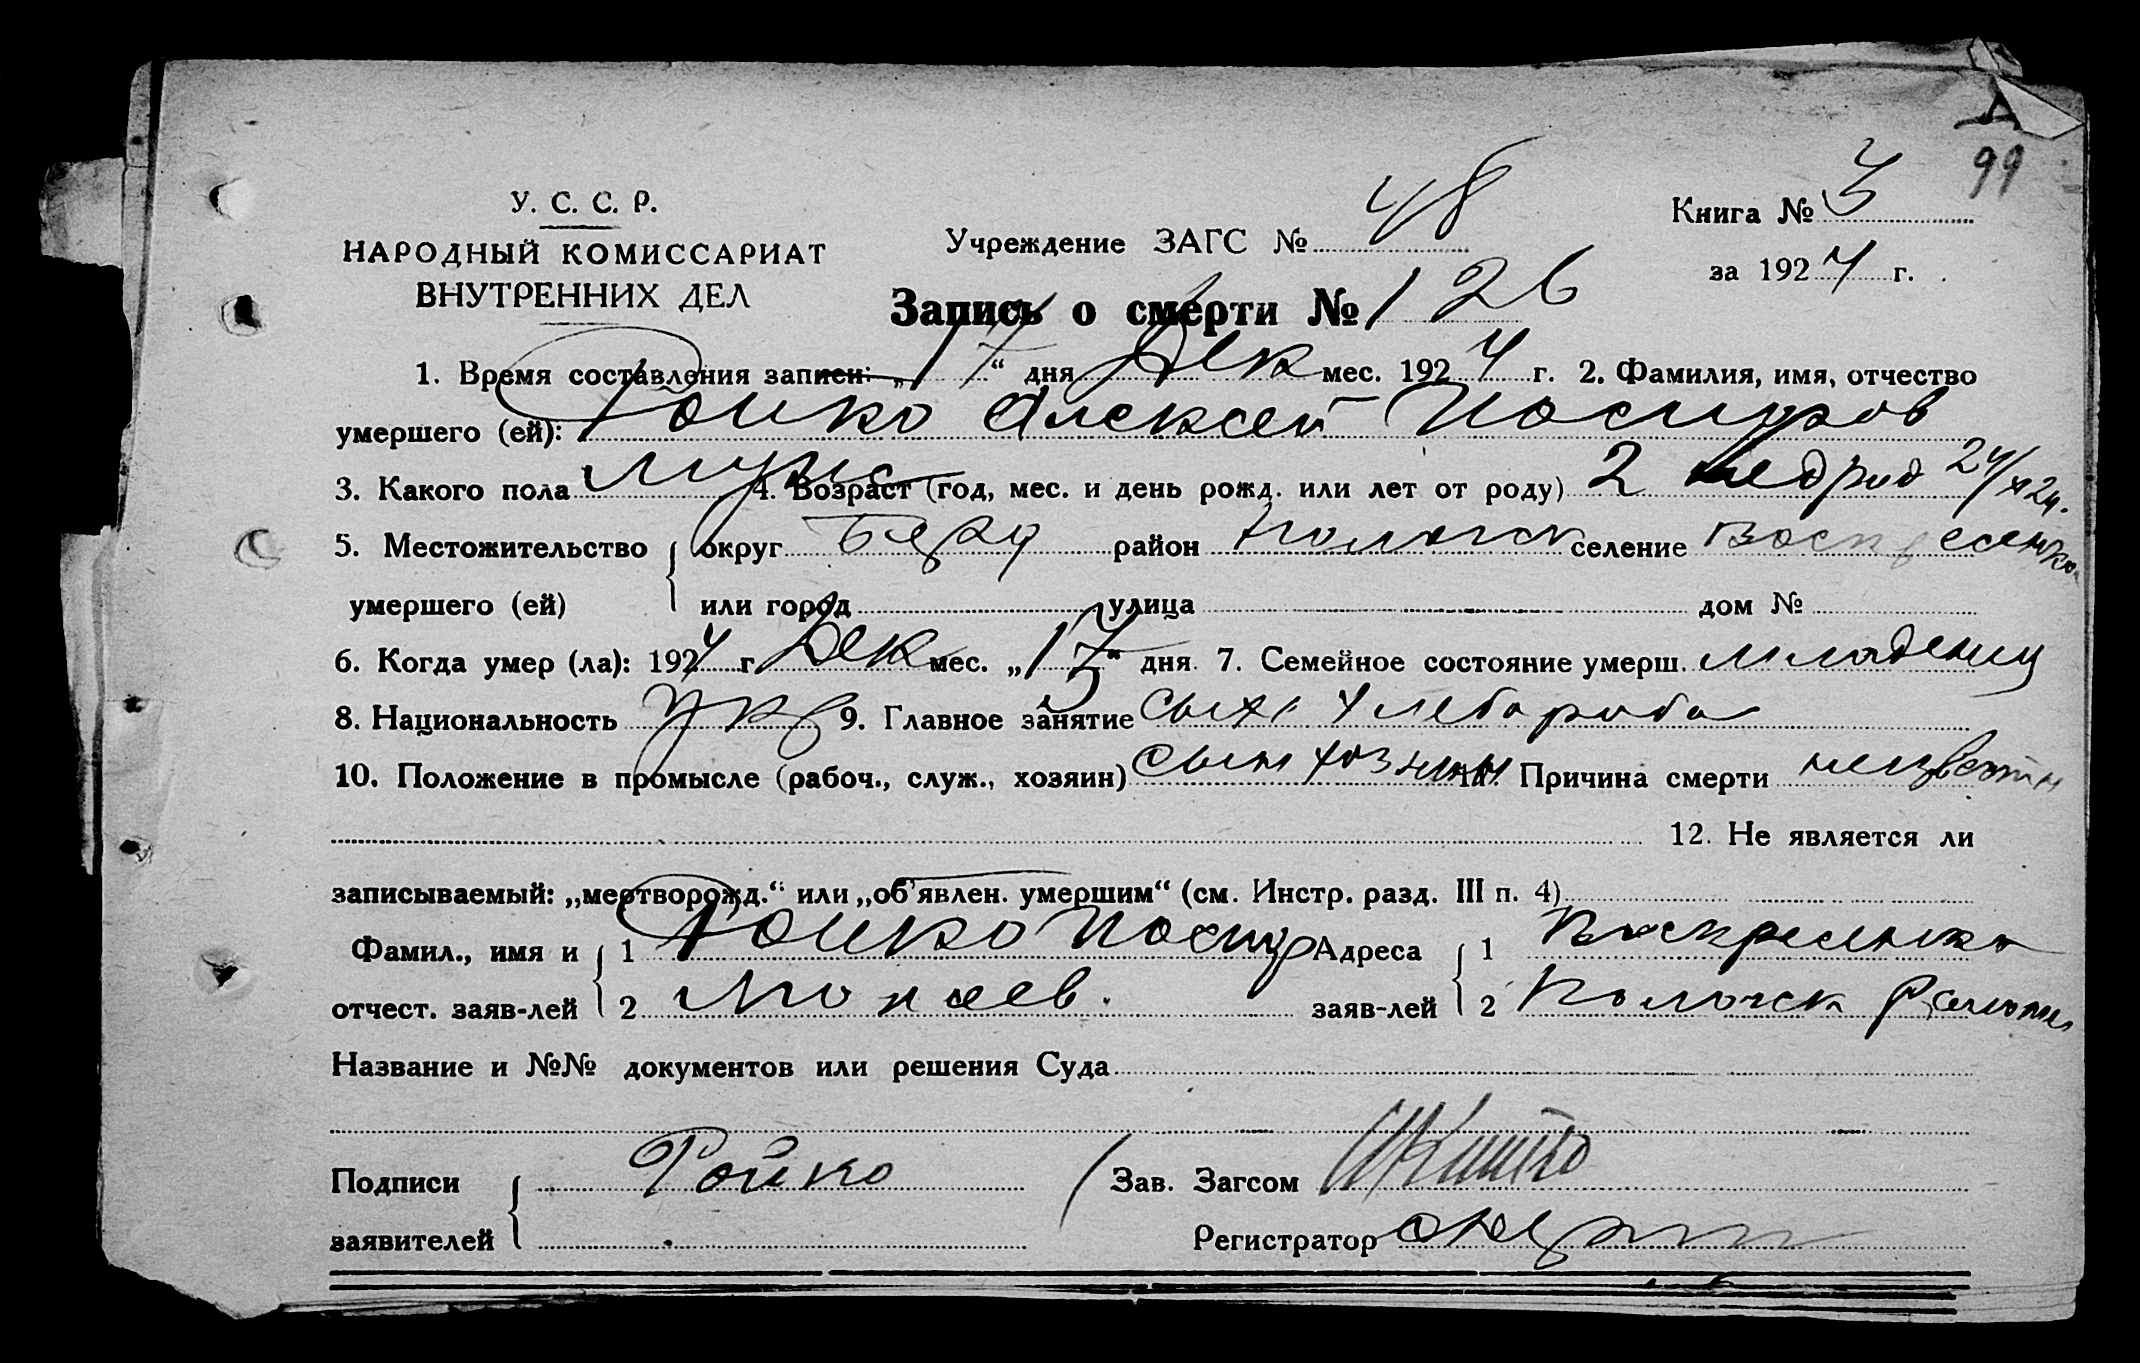 А
99
У. С. С. Р.
НАРОДНЫЙ КОМИССАРИАТ
ВНУТРЕННИХ ДЕЛ
Учреждение ЗАГС № 48
Книга № 3
за 1924 г.
Запись о смерти № 126
1. Время составления записи: „17“ дня Дек мес. 1924 г. 2. Фамилия, имя, отчество
умершего (ей): Ройко Алексей
3. Какого пола муж 4. Возраст (год, мес. и день рожд. или лет от роду) 2 нед
5. Местожительство округ Берд район селение Воскресенка
умершего (ей) или город улица дом №
6. Когда умер (ла): 1924 г. Дек мес. „17“ дня. 7. Семейное состояние умерш. младенец
8. Национальность укр 9. Главное занятие сын хлебороба
10. Положение в промысле (рабоч., служ., хозяин) сын хозяин 11. Причина смерти неизвестн
12. Не является ли
записываемый: „мертворожд.“ или „об'явлен. умершим“ (см. Инстр. разд. III п. 4)
Фамил., имя и 1 Ройко Адреса 1 Воскресенка
отчест. заяв-лей 2 заяв-лей 2
Название и №№ документов или решения Суда
Подписи Ройко Зав. Загсом
заявителей Регистратор